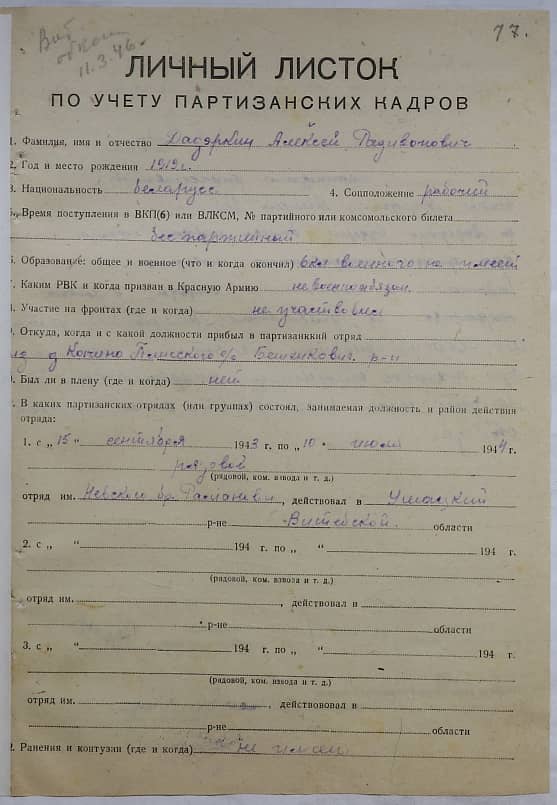 Вит обком 11.3.46г.
17.
ЛИЧНЫЙ ЛИСТОК
ПО УЧЕТУ ПАРТИЗАНСКИХ КАДРОВ
1. Фамилия, имя и отчество Дадэркин Алексей Радивонович
2. Год и место рождения 1919г.
3. Национальность беларусс 4. Соцположение рабочий
5. Время поступления в ВКП(б) или ВЛКСМ, № партийного или комсомольского билета
беспартийный
6. Образование: общее и военное (что и когда окончил) 6кл военного не имеет
7. Каким РВК и когда призван в Красную Армию невоеннообязан.
8. Участие на фронтах (где и когда) не участвовал
9. Откуда, когда и с какой должности прибыл в партизанккий отряд
из д с/с Бешенкович. р-н
. Был ли в плену (где и когда) ней
. В каких партизанских отрядах (или группах) состоял, занимаемая должность и район действия
отряда:
1. с „ 15 “ сентября 1943 г. по „ 10 “ июля 1944 г.
рядовой
(рядовой, ком. взвода и т. д.)
отряд им. Невского бр. , действовал в Ушацкий
р-не Витебской области
2. с „ “ 194 г. по „ “ 194 г.
(рядовой, ком. взвода и т. д.)
отряд им. , действовал в
р-не области
3. с „ “ 194 г. по „ “ 194 г.
(рядовой, ком. взвода и т. д.)
отряд им. , действововал в
р-не области
2. Ранения и контузии (где и когда) не имеет